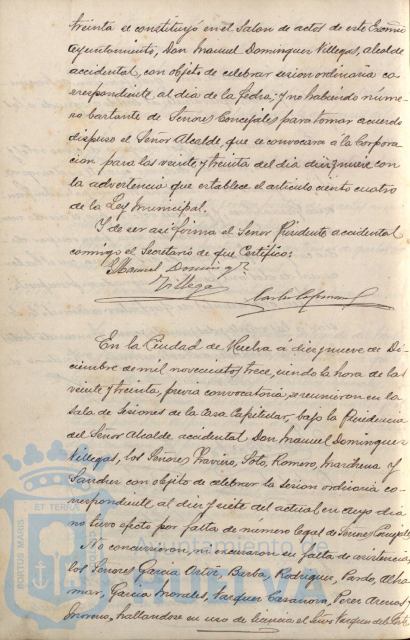 treinta se constituyó en el Salon de actos de este Excmo
Ayuntamiento, Don Manuel Dominguez Villegas, Alcalde
accidental, con objeto de celebrar sesion ordinaria co-
rrespondiente al dia de la fecha; y no habiendo núme-
ro bastante de Señores Concejales para tomar acuerdo
dispuso el Señor Alcalde, que se convocara á la Corpora-
cion para las veinte y treinta del dia diez y nueve con
la advertencia que establece el articulo ciento cuatro
de la Ley Municipal.
Y de ser asi firma el Señor Presidente accidental
conmigo el Secretario de que Certifico:
Manuel Domingz
Villegas
En la Ciudad de Huelva á diez y nueve de Di-
ciembre de mil novecientos trece, siendo la hora de las
veinte y treinta, previa convocatoria, se reunieron en la
Sala de Sesiones de la Casa Capitular, bajo la Presidencia
del Señor Alcalde accidental Don Manuel Dominguez
Villegas, los Señores Traviro, Soto, Romero, Marchena y
Sanchez con objeto de celebrar la Sesion ordinaria co-
rrespondiente al diez y siete del actual en cuyo dia
no tuvo efecto por falta de número legal de Señores Concejales
No concurrieron, ni excusaron su falta de asistencia,
los Señores Garcia Ortiz, Barba, Rodriguez, Pardo, Alba-
mar, Garcia Morales, Vazquez Casanova, Perez Arenas y
hallandose en uso de licencia el Señor Vazquez
PORTUS MARIS
ET TERRÆ
Ayuntamiento de
HUELVA